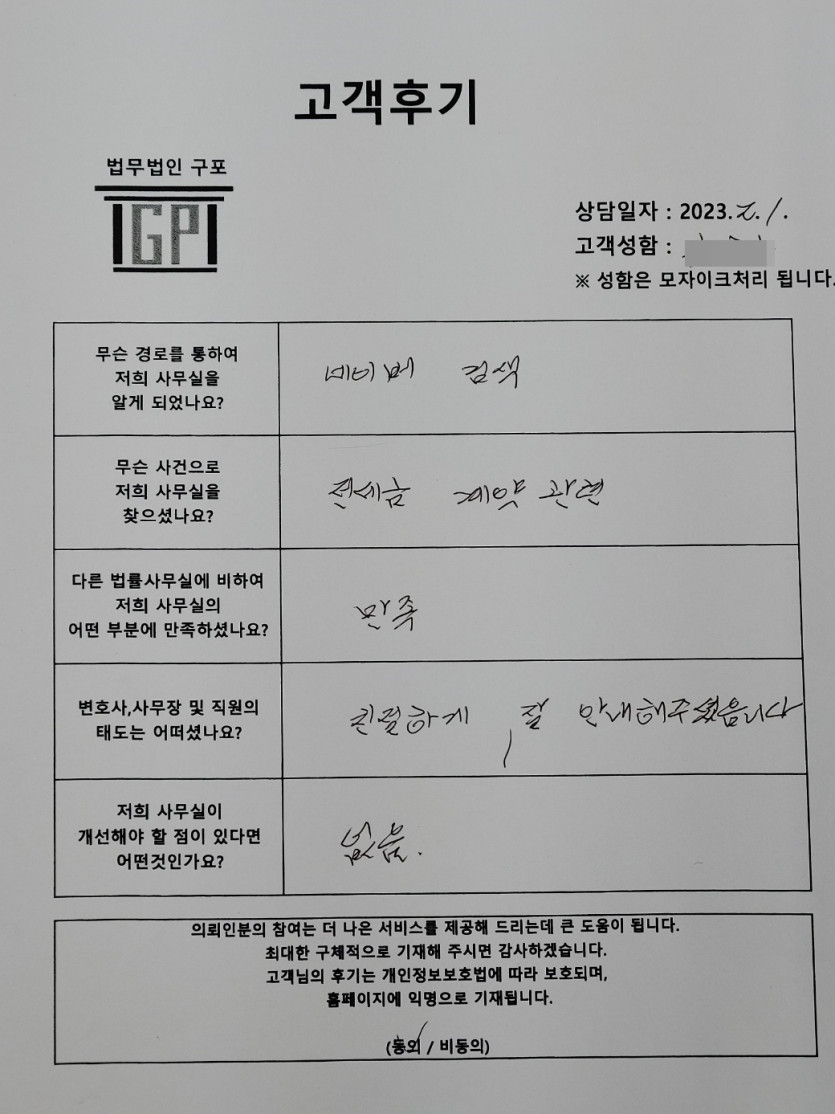 고객후기
법무법인 구포
IGPI
상담일자 : 2023. 2. 1.
고객성함 :
※ 성함은 모자이크처리 됩니다.
무슨 경로를 통하여
저희 사무실을
알게 되었나요?
네이버 검색
무슨 사건으로
저희 사무실을
찾으셨나요?
전세금 계약 관련
다른 법률사무실에 비하여
저희 사무실의
어떤 부분에 만족하셨나요?
만족
변호사,사무장 및 직원의
태도는 어떠셨나요?
친절하게 잘 안내해주셨음니다
저희 사무실이
개선해야 할 점이 있다면
어떤것인가요?
없음.
의뢰인분의 참여는 더 나은 서비스를 제공해 드리는데 큰 도움이 됩니다.
최대한 구체적으로 기재해 주시면 감사하겠습니다.
고객님의 후기는 개인정보보호법에 따라 보호되며,
홈페이지에 익명으로 기재됩니다.
(동의 / 비동의)